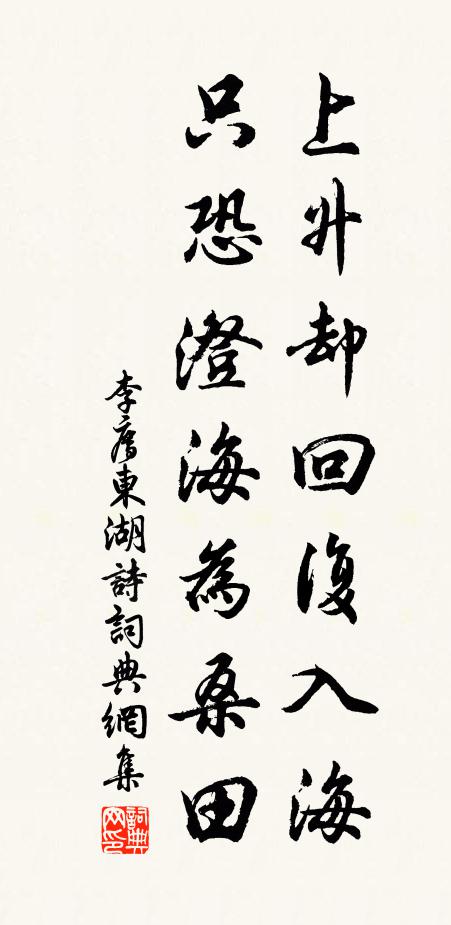 上升却回復入海
只恐澄海為桑田
李廌東湖詩詞典網集
詞典网印